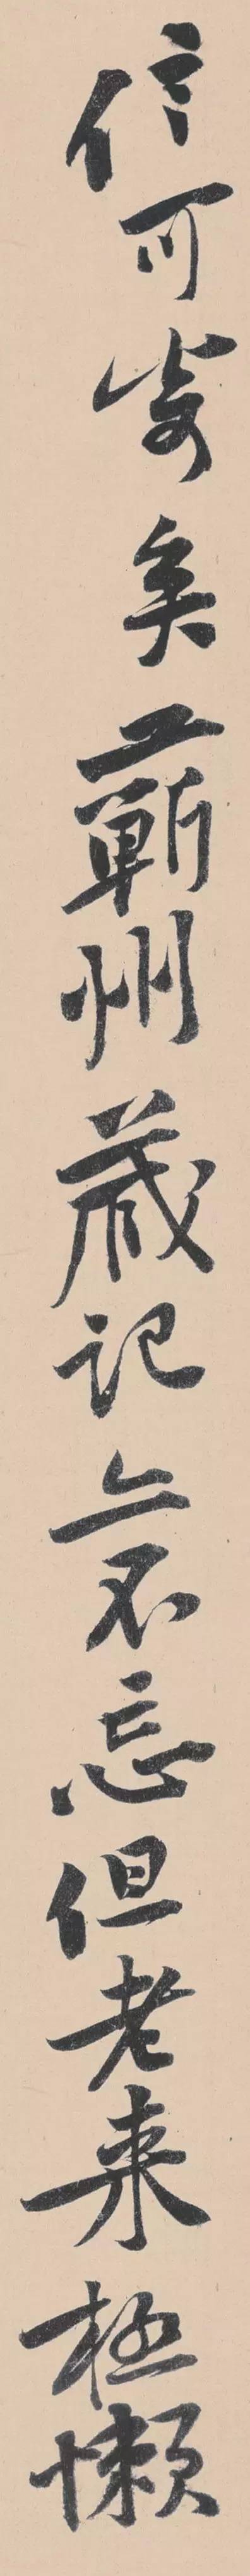 信可矣蘄州藏記亦不忘但老来極懶